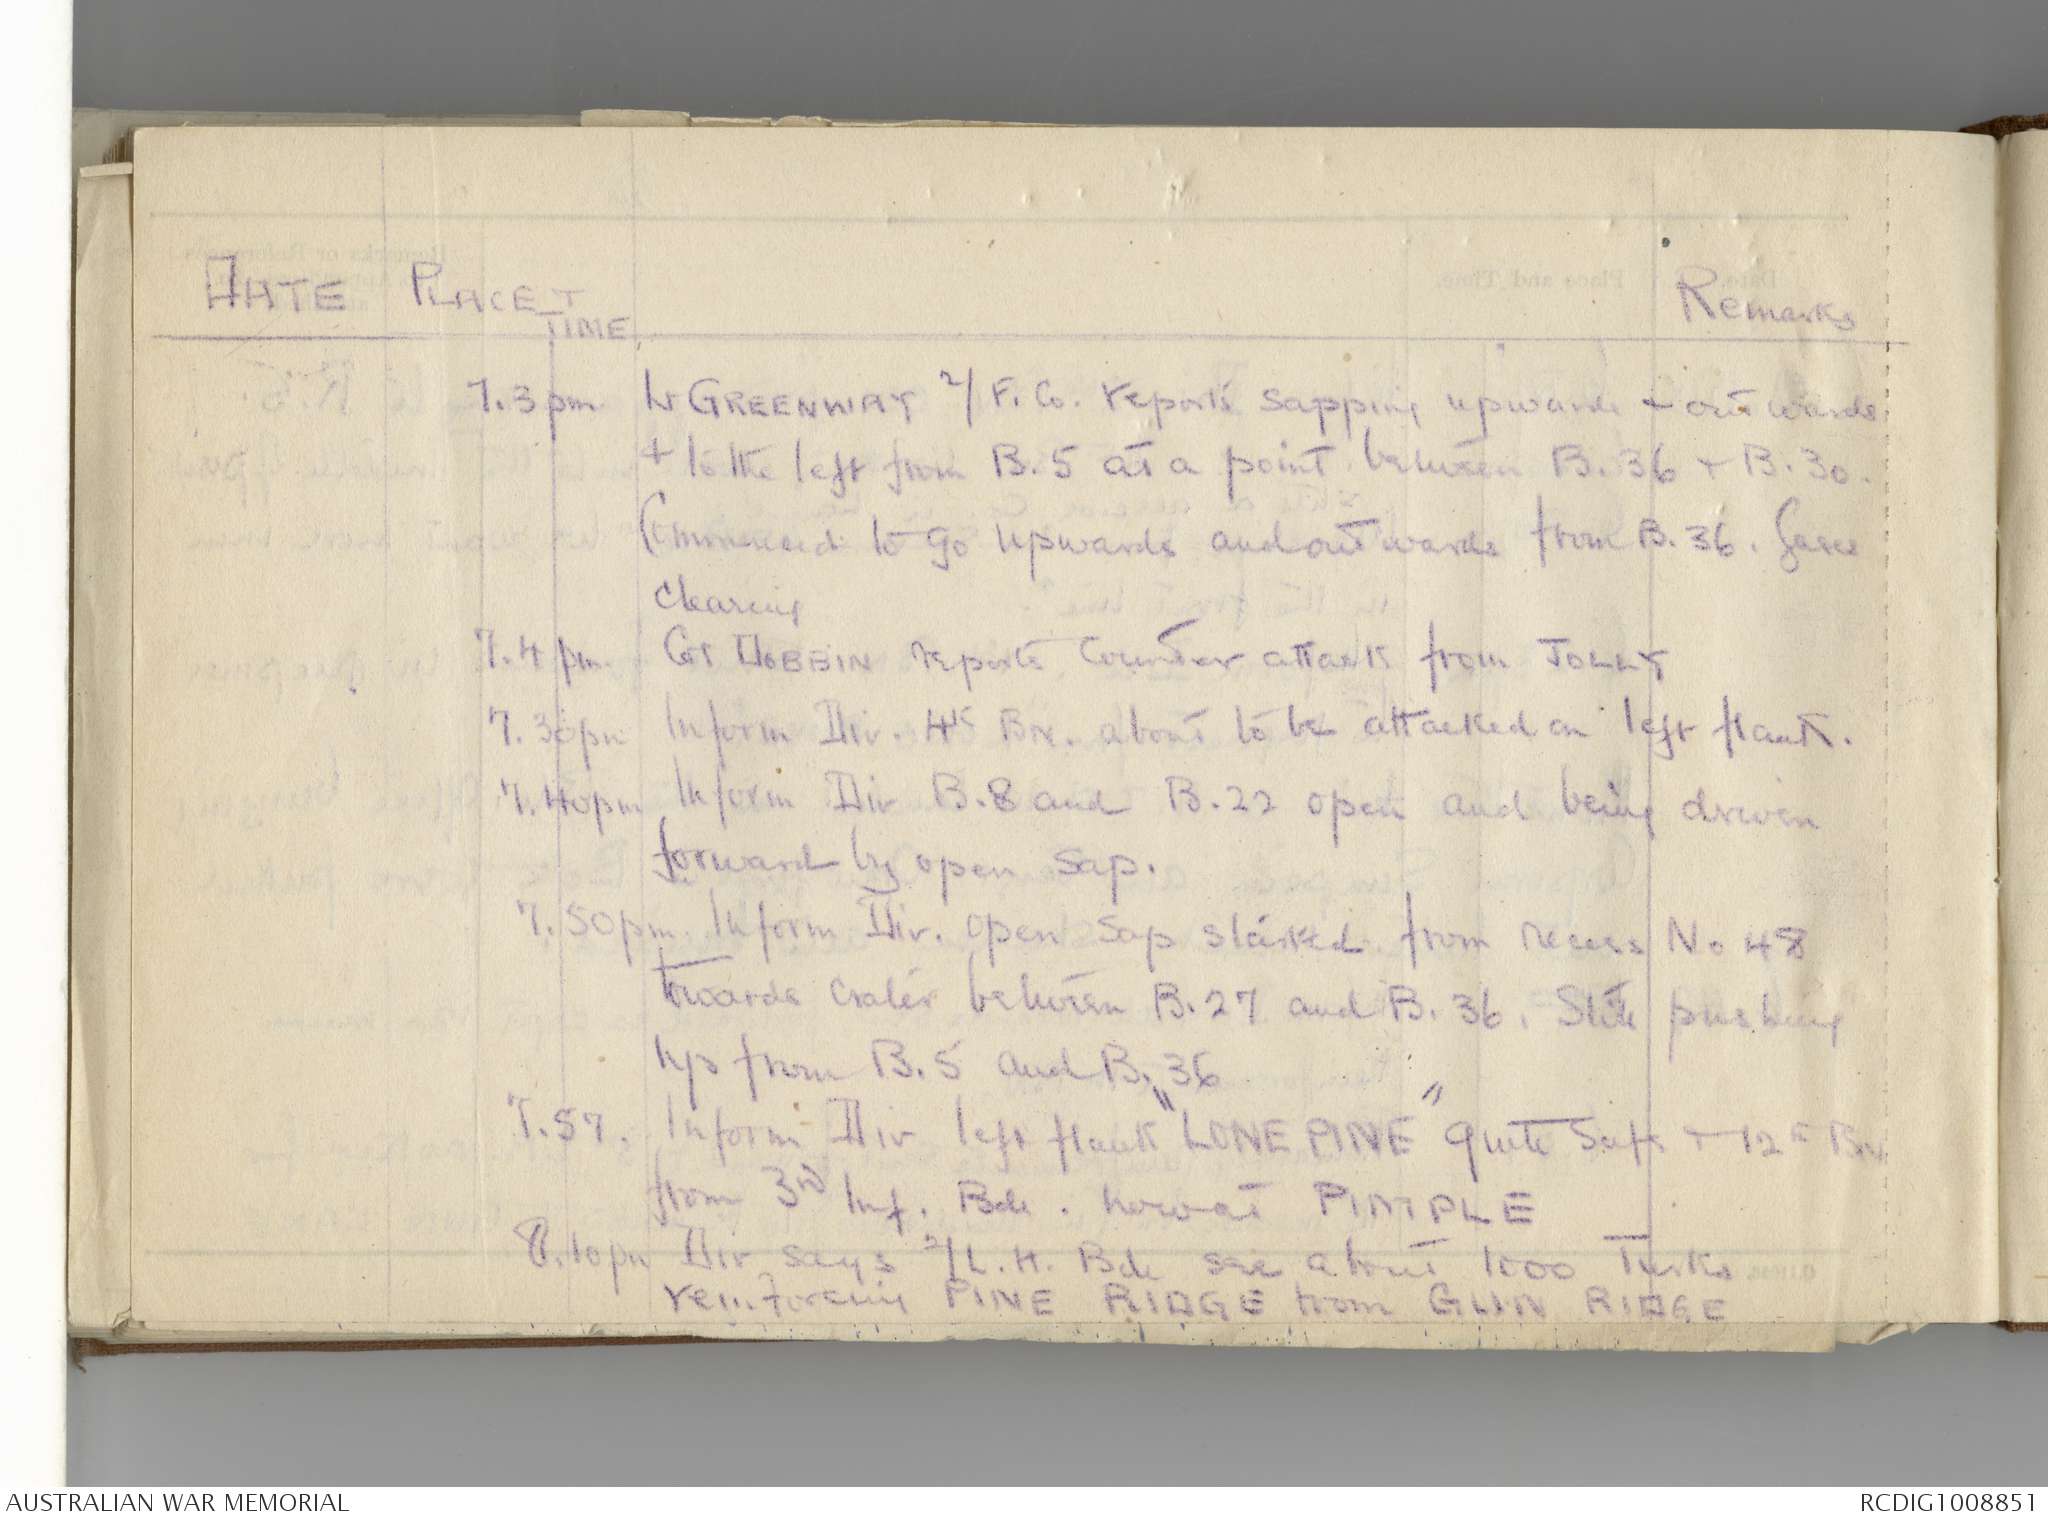 DATE PLACE + TIME Remarks
7.3pm Lt GREENWAY 2/F. Co. reports sapping upwards + outwards
+ to the left from B.5 at a point between B.36 + B.30.
Commenced to go upwards and outwards from B.36. Gases
clearing
7.4 pm. Col DOBBIN reports Counter attack from JOLLY
7.30pm Inform Div. 4th Bn. about to be attacked on left flank.
7.40pm Inform Div B.8 and B.22 open and being driven
forward by open Sap.
7.50pm. Inform Div. open Sap started from recess No 48
towards Crater between B.27 and B.36. Still pushing
up from B.5 and B.36
7.57. Inform Div left flank "LONE PINE" quite Safe + 12th Bn
from 3rd Inf. Bde. now at PIMPLE
8.10pm Div says 2/L.H. Bde see about 1000 Turks
reinforcing PINE RIDGE from GUN RIDGE
AUSTRALIAN WAR MEMORIAL RCDIG1008851